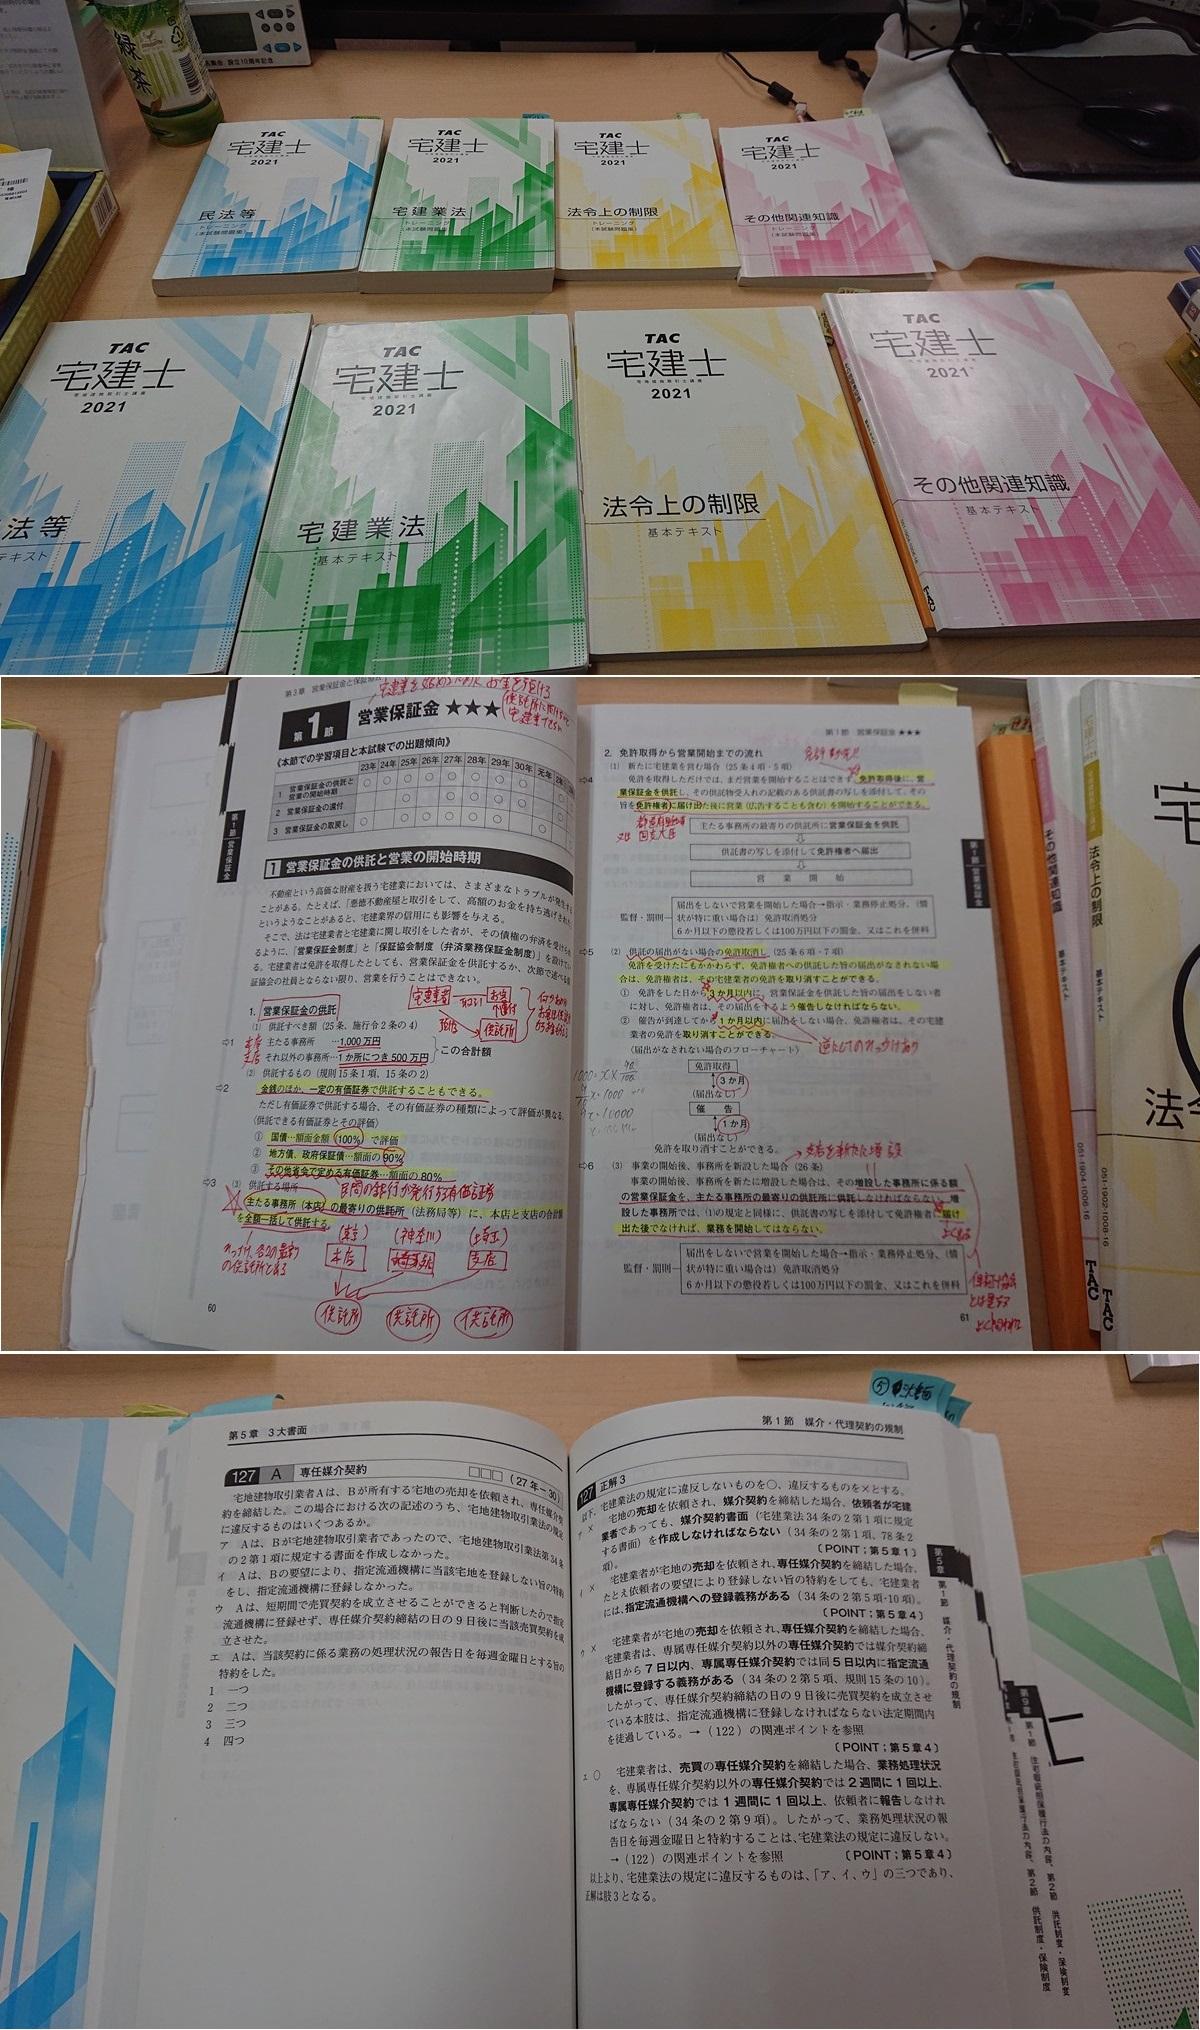 緑茶
設立10周年記念
TAC
宅建士
2021
民法等
トレーニング
(本試験問題集)
TAC
宅建士
2021
宅建業法
トレーニング
(本試験問題集)
TAC
宅建士
2021
法令上の制限
トレーニング
(本試験問題集)
TAC
宅建士
2021
その他関連知識
トレーニング
(本試験問題集)
TAC
宅建士
宅地建物取引士講座
2021
法等
テキスト
TAC
宅建士
宅地建物取引士講座
2021
宅建業法
基本テキスト
TAC
宅建士
宅地建物取引士講座
2021
法令上の制限
基本テキスト
TAC
宅建士
2021
その他関連知識
基本テキスト
TAC
第3章 営業保証金と保証協会
第1節 営業保証金 ★★★
《本節での学習項目と本試験での出題傾向》
23年 24年 25年 26年 27年 28年 29年 30年 元年 2年
1 営業保証金の供託と営業の開始時期
2 営業保証金の還付
3 営業保証金の取戻し
第1節 営業保証金
1 営業保証金の供託と営業の開始時期
不動産という高価な財産を扱う宅建業においては、さまざまなトラブルが発生する
ことがある。たとえば、「悪徳不動産屋と取引をして、高額のお金を持ち逃げされた」
というようなことがあると、宅建業界の信用にも影響を与える。
そこで、法は宅建業者と宅建業に関し取引をした者が、その債権の弁済を受けられ
るように、「営業保証金制度」と「保証協会制度（弁済業務保証金制度）」を設けてい
る。宅建業者は免許を取得したとしても、営業保証金を供託するか、次節で述べる保
証協会の社員とならない限り、営業を行うことはできない。
1. 営業保証金の供託
(1) 供託すべき額（25条、施行令2条の4）
⇨1 主たる事務所 …1,000万円
それ以外の事務所…1か所につき500万円
この合計額
本店
支店
宅建業者
お客
供託所
(2) 供託するもの（規則15条1項、15条の2）
⇨2 金銭のほか、一定の有価証券で供託することもできる。
ただし有価証券で供託する場合、その有価証券の種類によって評価が異なる。
(供託できる有価証券とその評価)
① 国債…額面金額(100%)で評価
② 地方債、政府保証債…額面の90%
③ その他省令で定める有価証券…額面の80%
民間の銀行が発行する有価証券
⇨3 (3) 供託する場所
主たる事務所（本店）の最寄りの供託所（法務局等）に、本店と支店の合計額
を全額一括して供託する。
(東京) (神奈川) (埼玉)
本店 支店
供託所 供託所 供託所
60
第1節 営業保証金 ★★★
2. 免許取得から営業開始までの流れ
(1) 新たに宅建業を営む場合（25条4項・5項）
⇨4 免許を取得しただけでは、まだ営業を開始することはできず、免許取得後に、営
業保証金を供託し、その供託物受入れの記載のある供託書の写しを添付して、その
旨を免許権者に届け出た後に営業（広告することも含む）を開始することができる。
都道府県知事
又は 国交大臣
主たる事務所の最寄りの供託所に営業保証金を供託
供託書の写しを添付して免許権者へ届出
営業開始
監督・罰則
届出をしないで営業を開始した場合→指示・業務停止処分、（情
状が特に重い場合は）免許取消処分
6か月以下の懲役若しくは100万円以下の罰金、又はこれを併科
⇨5 (2) 供託の届出がない場合の免許取消し（25条6項・7項）
免許を受けたにもかかわらず、免許権者への供託した旨の届出がなされない場
合は、免許権者は、その宅建業者の免許を取り消すことができる。
① 免許をした日から3か月以内に、営業保証金を供託した旨の届出をしない者
に対し、免許権者は、その届出をするよう催告しなければならない。
② 催告が到達してから1か月以内に届出をしない場合、免許権者は、その宅建
業者の免許を取り消すことができる。
(届出がなされない場合のフローチャート)
免許取得
3か月
(届出なし)
催告
1か月
(届出なし)
免許を取り消すことができる。
支店を新たに増設
⇨6 (3) 事業の開始後、事務所を新設した場合（26条）
事業の開始後、事務所を新たに増設した場合は、その増設した事務所に係る額
の営業保証金を、主たる事務所の最寄りの供託所に供託しなければならない。増
設した事務所では、(1)の規定と同様に、供託書の写しを添付して免許権者に届け
出た後でなければ、業務を開始してはならない。
監督・罰則
届出をしないで営業を開始した場合→指示・業務停止処分、（情
状が特に重い場合は）免許取消処分
6か月以下の懲役若しくは100万円以下の罰金、又はこれを併科
61
第1節 営業保証金
その他関連知識
基本テキスト
051-1904-1006-16
TAC
法令上の制限
基本テキスト
051-1902-1008-16
TAC
第5章 3大書面
127 A 専任媒介契約 □□□（27年－30）
宅地建物取引業者Aは、Bが所有する宅地の売却を依頼され、専任媒介契
約を締結した。この場合における次の記述のうち、宅地建物取引業法の規定
に違反するものはいくつあるか。
ア Aは、Bが宅地建物取引業者であったので、宅地建物取引業法第34条
の2第1項に規定する書面を作成しなかった。
イ Aは、Bの要望により、指定流通機構に当該宅地を登録しない旨の特約
をし、指定流通機構に登録しなかった。
ウ Aは、短期間で売買契約を成立させることができると判断したので指定
流通機構に登録せず、専任媒介契約締結の日の9日後に当該売買契約を成
立させた。
エ Aは、当該契約に係る業務の処理状況の報告日を毎週金曜日とする旨の
特約をした。
1 一つ
2 二つ
3 三つ
4 四つ
第1節 媒介・代理契約の規制
127 正解 3
以下、宅建業法の規定に違反しないものを○、違反するものを×とする。
ア × 宅地の売却を依頼され、媒介契約を締結した場合、依頼者が宅建
業者であっても、媒介契約書面（宅建業法34条の2第1項に規定
する書面）を作成しなければならない（34条の2第1項、78条2
項）。
〔POINT；第5章1〕
イ × 宅建業者が宅地の売却を依頼され、専任媒介契約を締結した場合、
たとえ依頼者の要望により登録しない旨の特約をしても、宅建業者
には、指定流通機構への登録義務がある（34条の2第5項・10項）。
〔POINT；第5章4〕
ウ × 宅建業者が宅地の売却を依頼され、専任媒介契約を締結した場合、
宅建業者は、専属専任媒介契約以外の専任媒介契約では媒介契約締
結日から7日以内、専属専任媒介契約では同5日以内に指定流通
機構に登録する義務がある（34条の2第5項、規則15条の10）。
したがって、専任媒介契約締結の日の9日後に売買契約を成立させ
ている本肢は、指定流通機構に登録しなければならない法定期間内
を徒過している。→（122）の関連ポイントを参照
〔POINT；第5章4〕
エ ○ 宅建業者は、売買の専任媒介契約を締結した場合、業務処理状況
を、専属専任媒介契約以外の専任媒介契約では2週間に1回以上、
専属専任媒介契約では1週間に1回以上、依頼者に報告しなけれ
ばならない（34条の2第9項）。したがって、業務処理状況の報
告日を毎週金曜日と特約することは、宅建業法の規定に違反しない。
→（122）の関連ポイントを参照 〔POINT；第5章4〕
以上より、宅建業法の規定に違反するものは、「ア、イ、ウ」の三つであり、
正解は肢3となる。
第5章 第1節 媒介・代理契約の規制
第9章